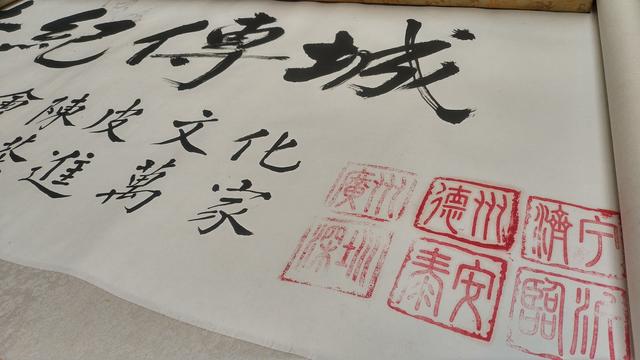 紀傳城
會陳皮文化
進萬家
廣州
德州
濟宁
深圳
泰安
臨沂